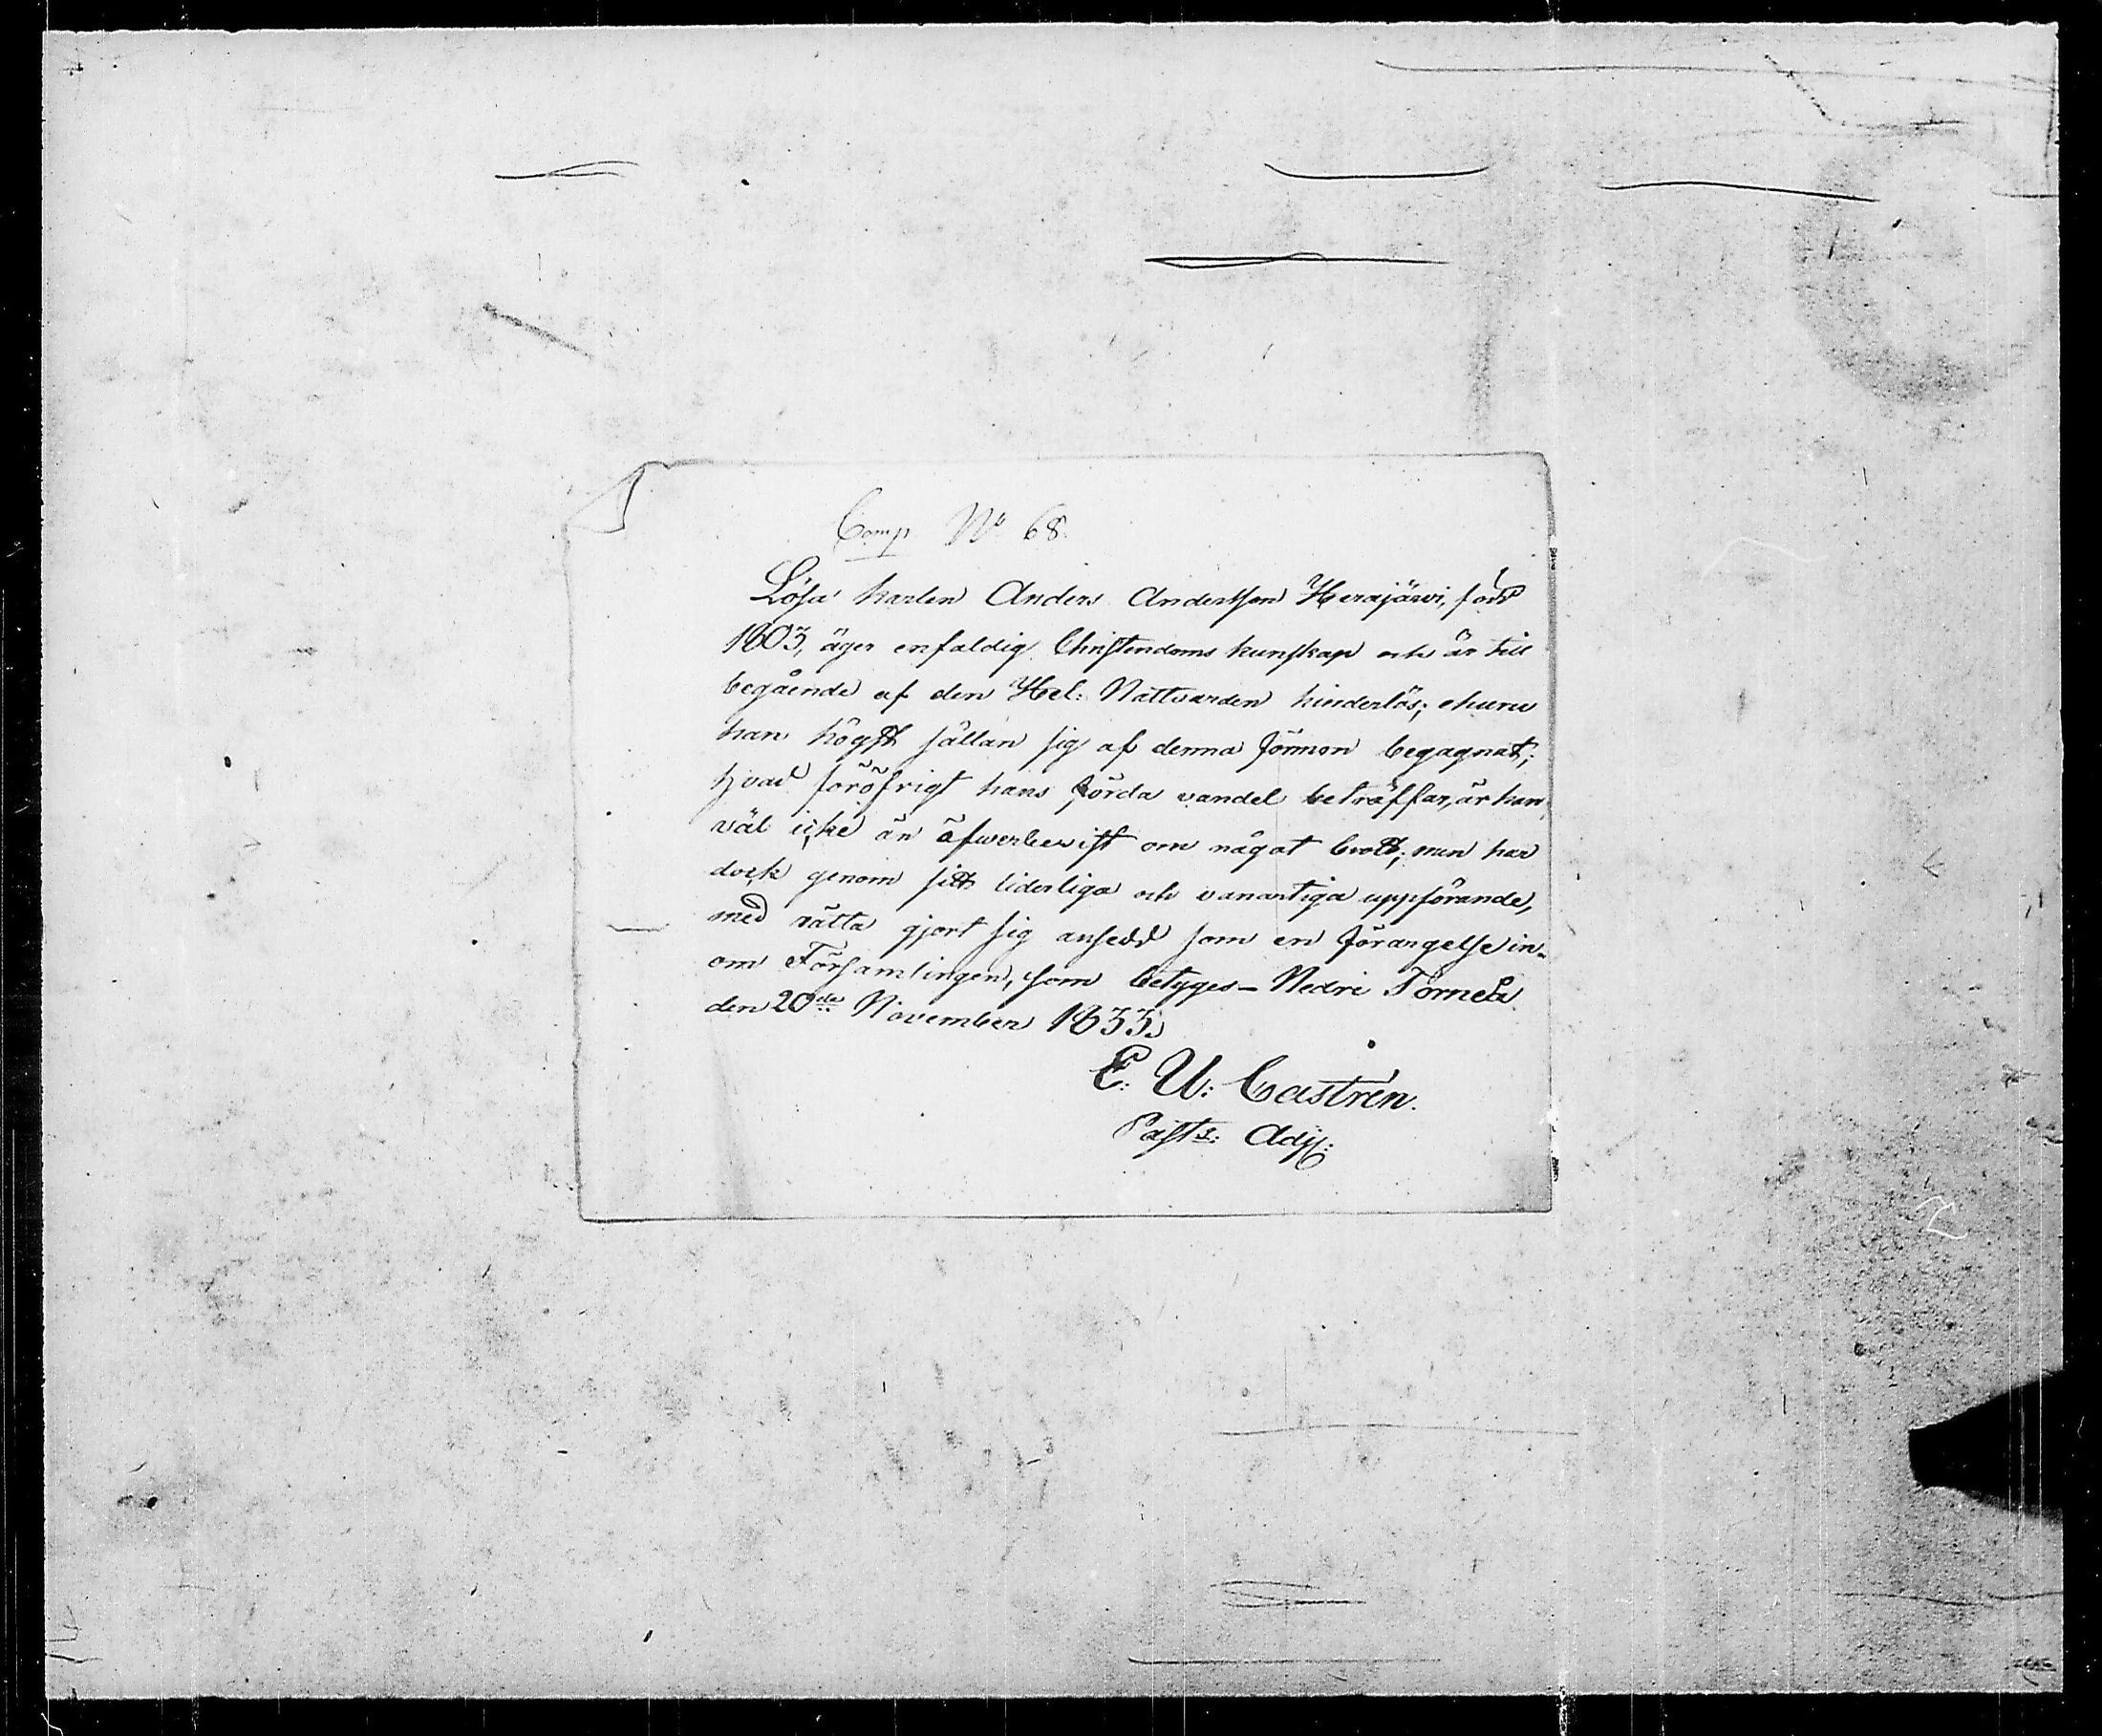 Comp No 68.
Lösa karlen Anders Andersson Herajärvi, född
1803, äger enfaldig Christendoms kunskap och är till
begående af den Hel: Nattvarden hinderlös; ehuru
han högst sällan sig af denna förmon begagnat;
hvadföröfrigt hans förda vandel beträffar, är han
väl icke än öfwerbevist om något brott; men har
dock genom sitt liderliga och vanartiga uppförande,
med rätta gjort sig ansedd som en förargelse in-
om Församlingen, som betyges - Nedre Torneå
den 20de November 1833.
E. U: Castrén.
Past: Adj: